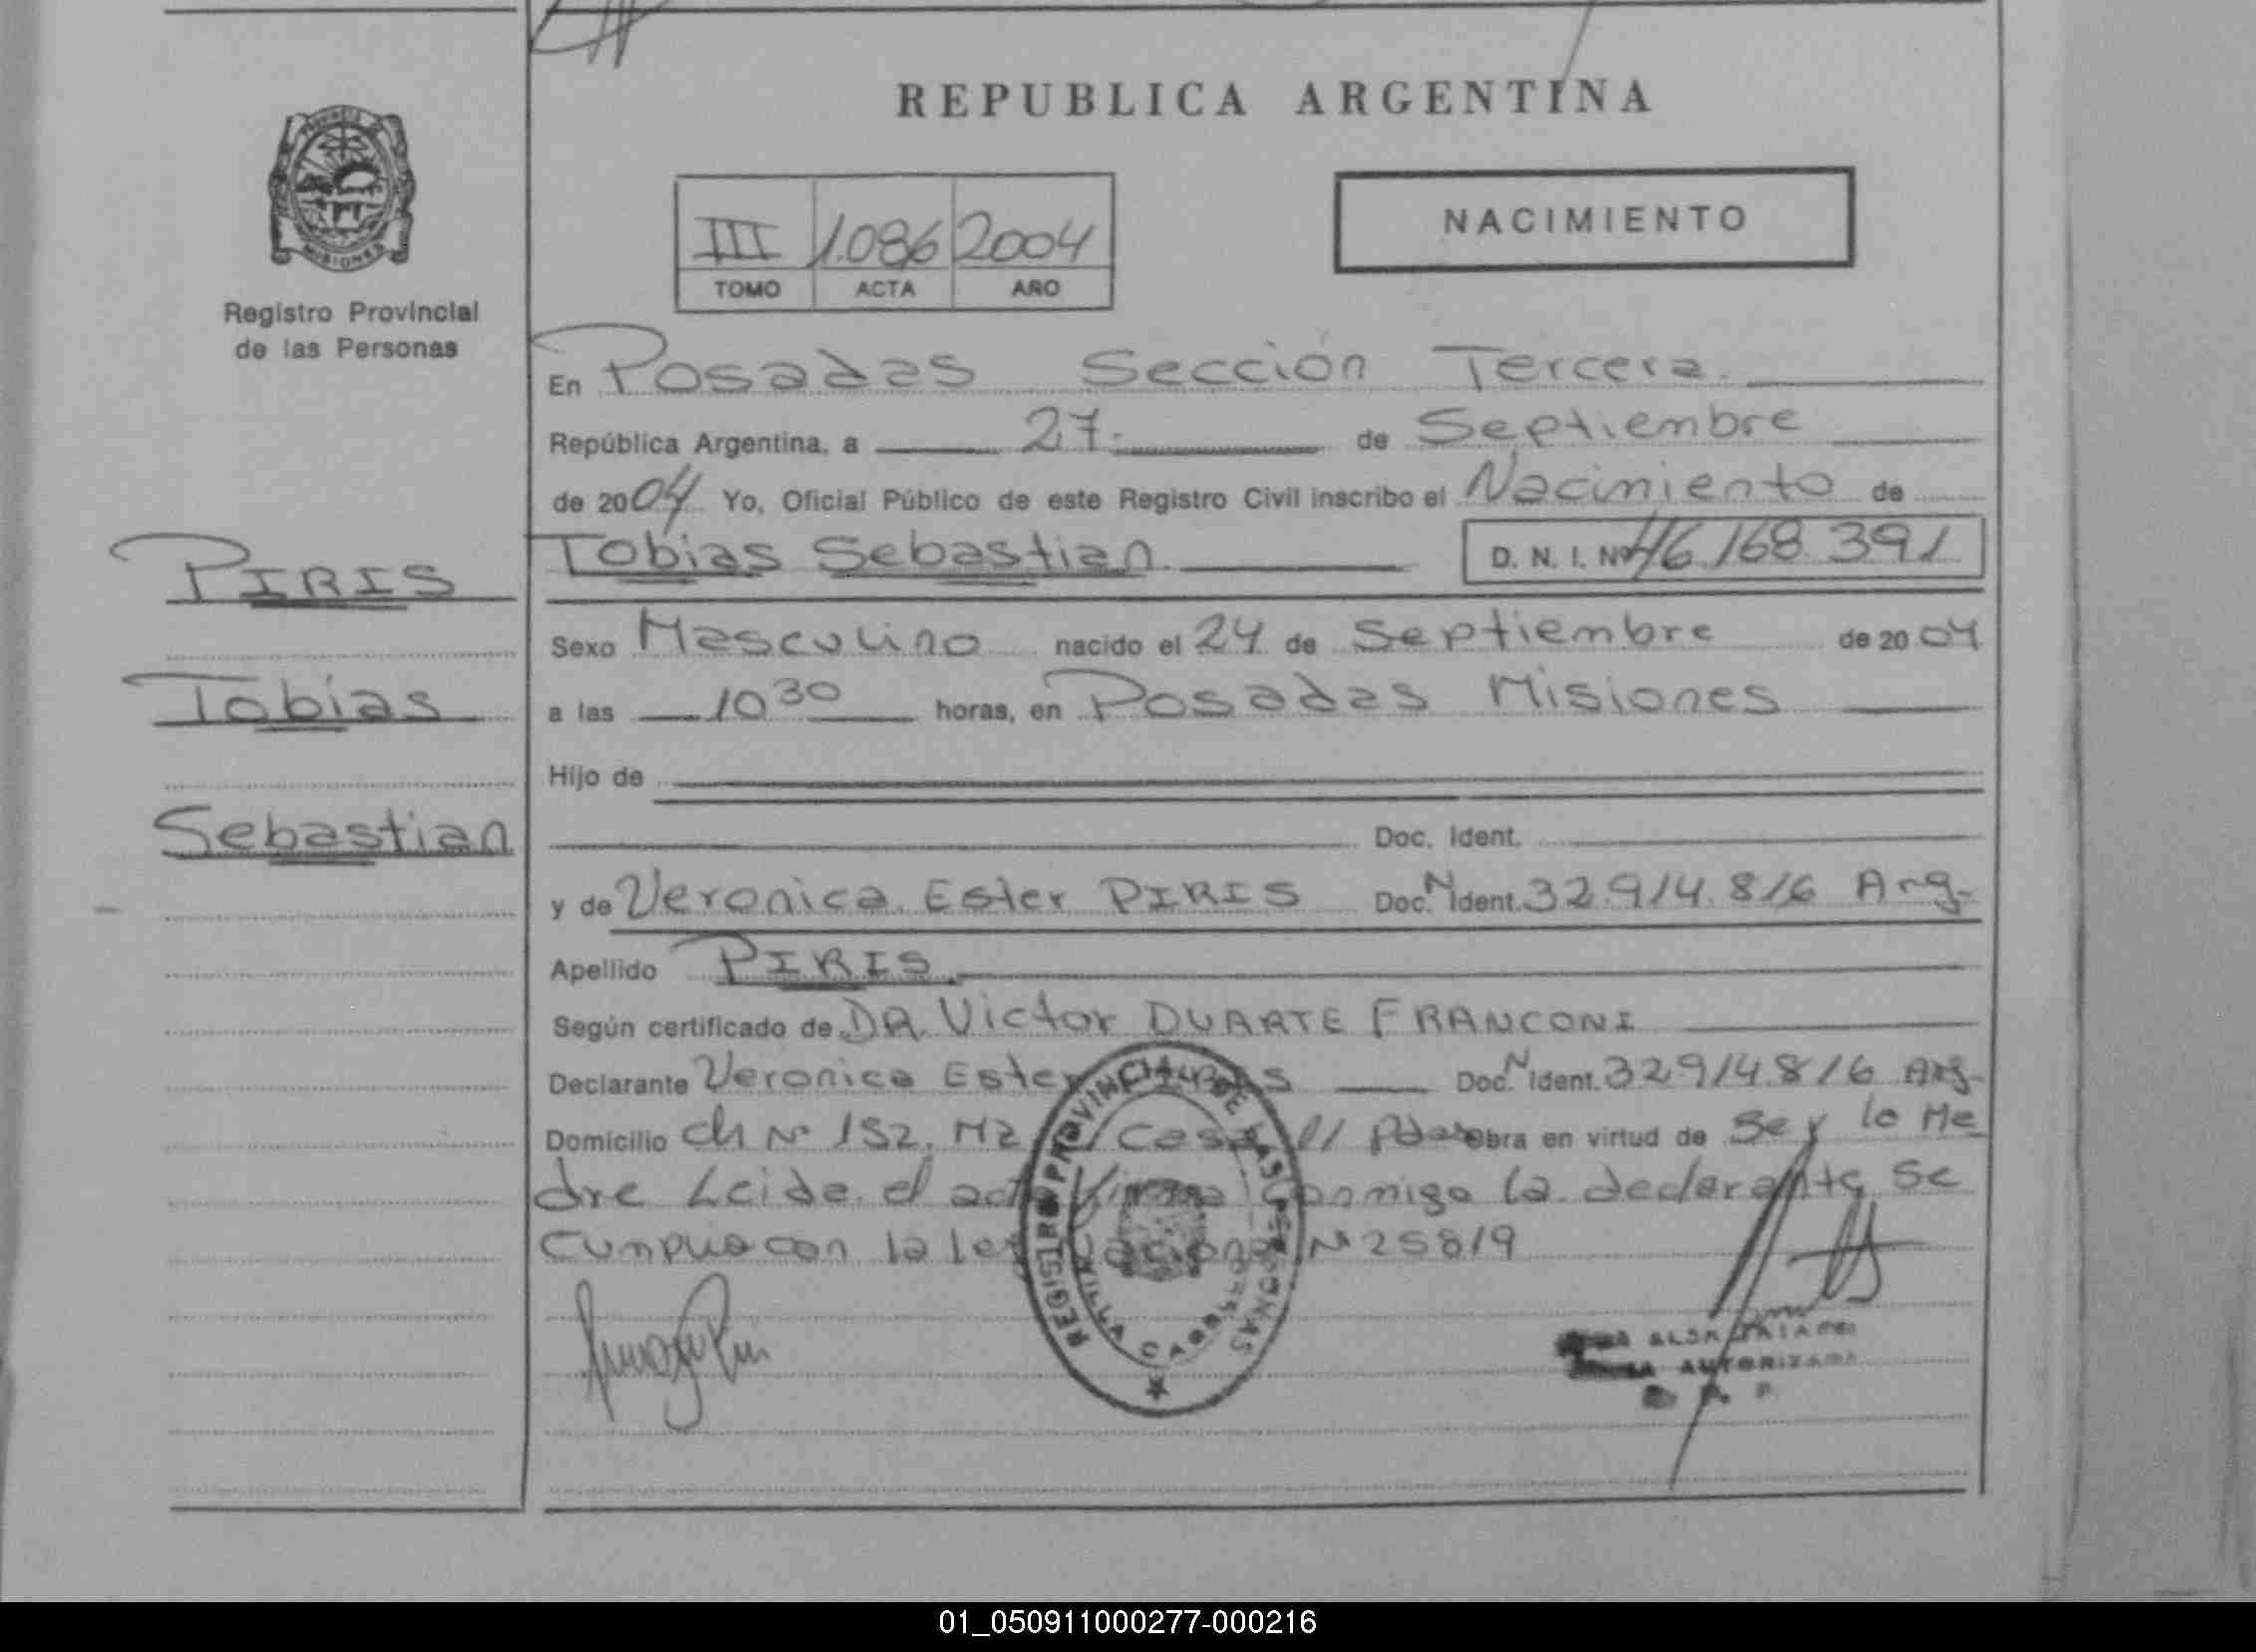 REPUBLICA ARGENTINA
PROVINCIA DE
MISIONES
Registro Provincial
de las Personas
III 1.086 2004
TOMO ACTA AÑO
NACIMIENTO
En Posadas Sección Tercera.
República Argentina, a 27. de Septiembre
de 2004 Yo, Oficial Público de este Registro Civil inscribo el Nacimiento de
Tobias Sebastian D. N. I. Nº 46.168.391
PIRIS
Tobias
Sebastian
Sexo Masculino nacido el 24 de Septiembre de 2004
a las 10 30 horas, en Posadas Misiones
Hijo de
Doc. Ident.
y de Veronica Ester PIRIS Doc. N Ident. 32.914.816 Arg.
Apellido PIRIS
Según certificado de DR. Victor DUARTE FRANCONI
Declarante Veronica Ester PIRIS Doc. N Ident. 32914.816 Arg.
Domicilio Ch Nº 152, Mz Casa 11 Pdas Obra en virtud de Ser la Ma
dre Leida el acta Firma Conmigo la declarante Se
Cumplio con la ley Nacional Nº 25819
REGISTRO PROVINCIAL DE LAS PERSONAS
VILLA CABELLO
ALBA
AUTORIZADA
R. P. P.
01_050911000277-000216